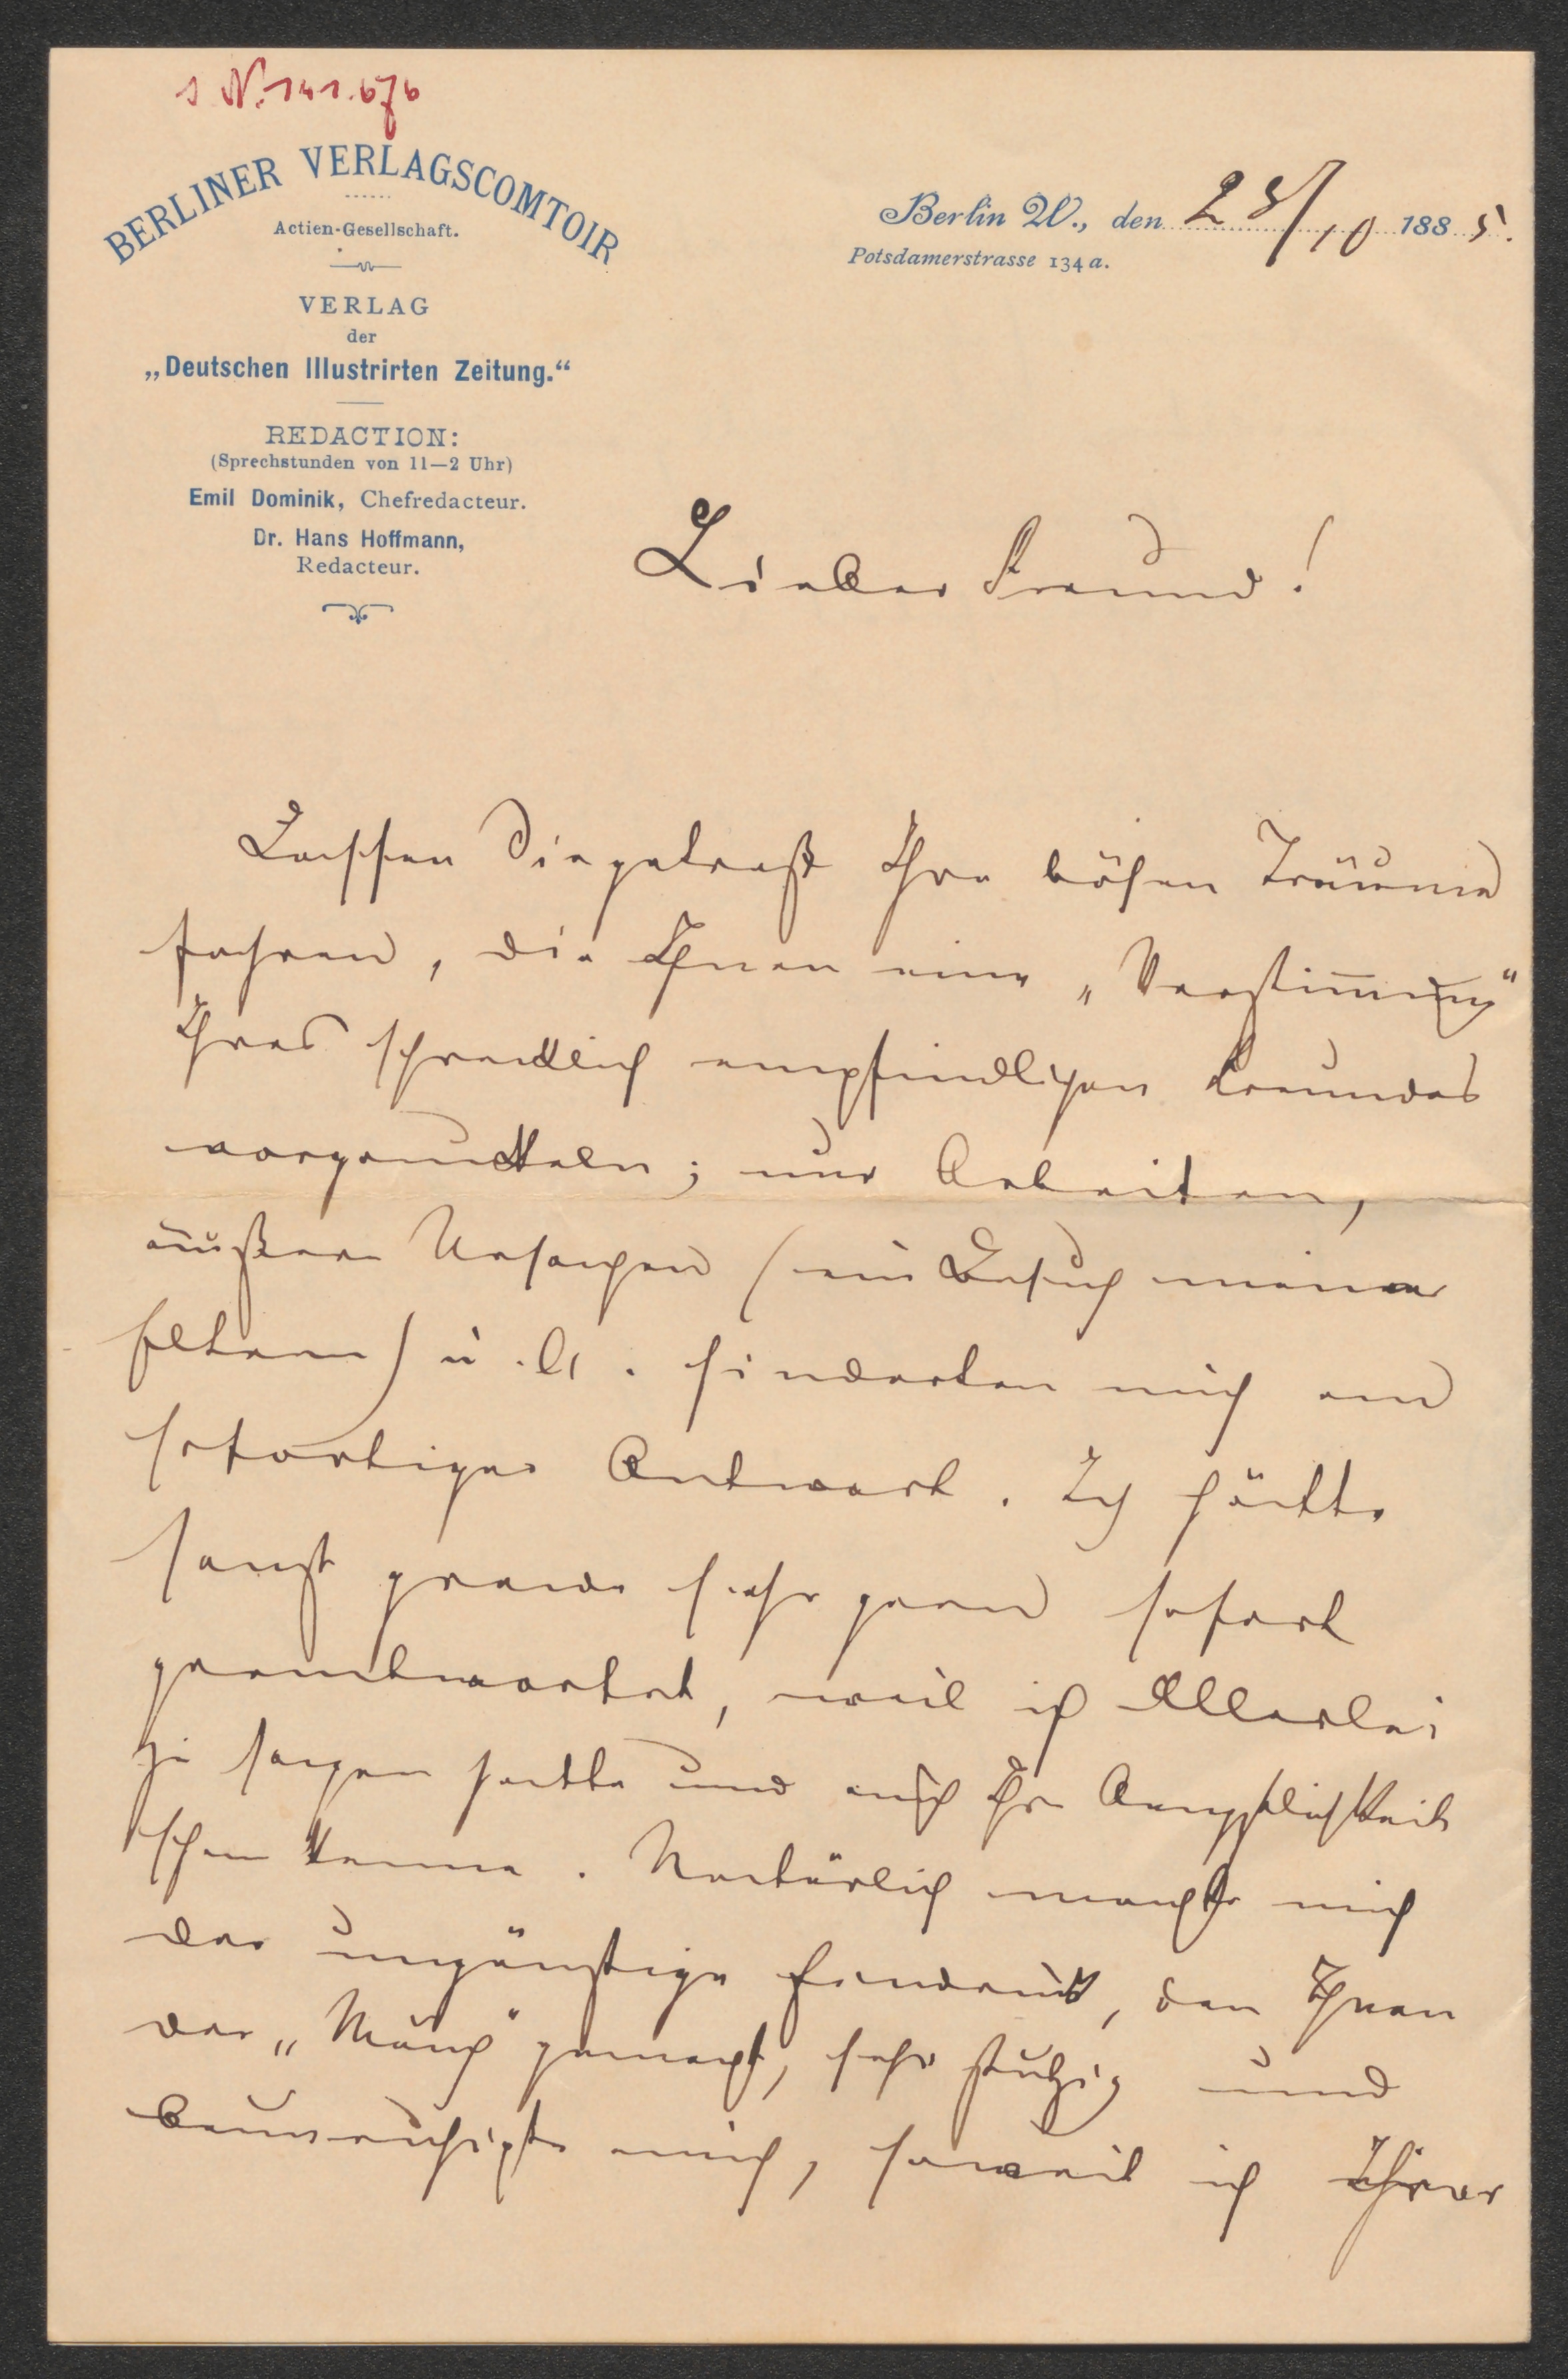 I N. 141.676
BERLINER VERLAGSCOMTOIR
Actien-Gesellschaft.
VERLAG
der
„Deutschen Illustrirten Zeitung.“
REDACTION:
(Sprechstunden von 11—2 Uhr)
Emil Dominik, Chefredacteur.
Dr. Hans Hoffmann,
Redacteur.
Berlin W., den 28/10 1885.
Potsdamerstrasse 134a.
Lieber Freund!
Lassen Sie getrost Ihre bösen Träume
fahren, die Ihnen eine „Verstimmung“
Ihres schrecklich empfindlichen Freundes
vorgaukeln; nur Arbeiten,
äußere Ursachen (ein Besuch meiner
Eltern) u. A. hinderten mich an
sofortiger Antwort. Ich hätte
sonst gerade sehr gern sofort
geantwortet, weil ich Allerlei
zu sagen hatte und auch Ihre Aengstlichkeit
schon kenne. Natürlich machte mich
der ungünstige Eindruck, den Ihnen
der „Mönch“ gemacht, sehr stutzig und
beunruhigte mich, soweit ich Ihrer